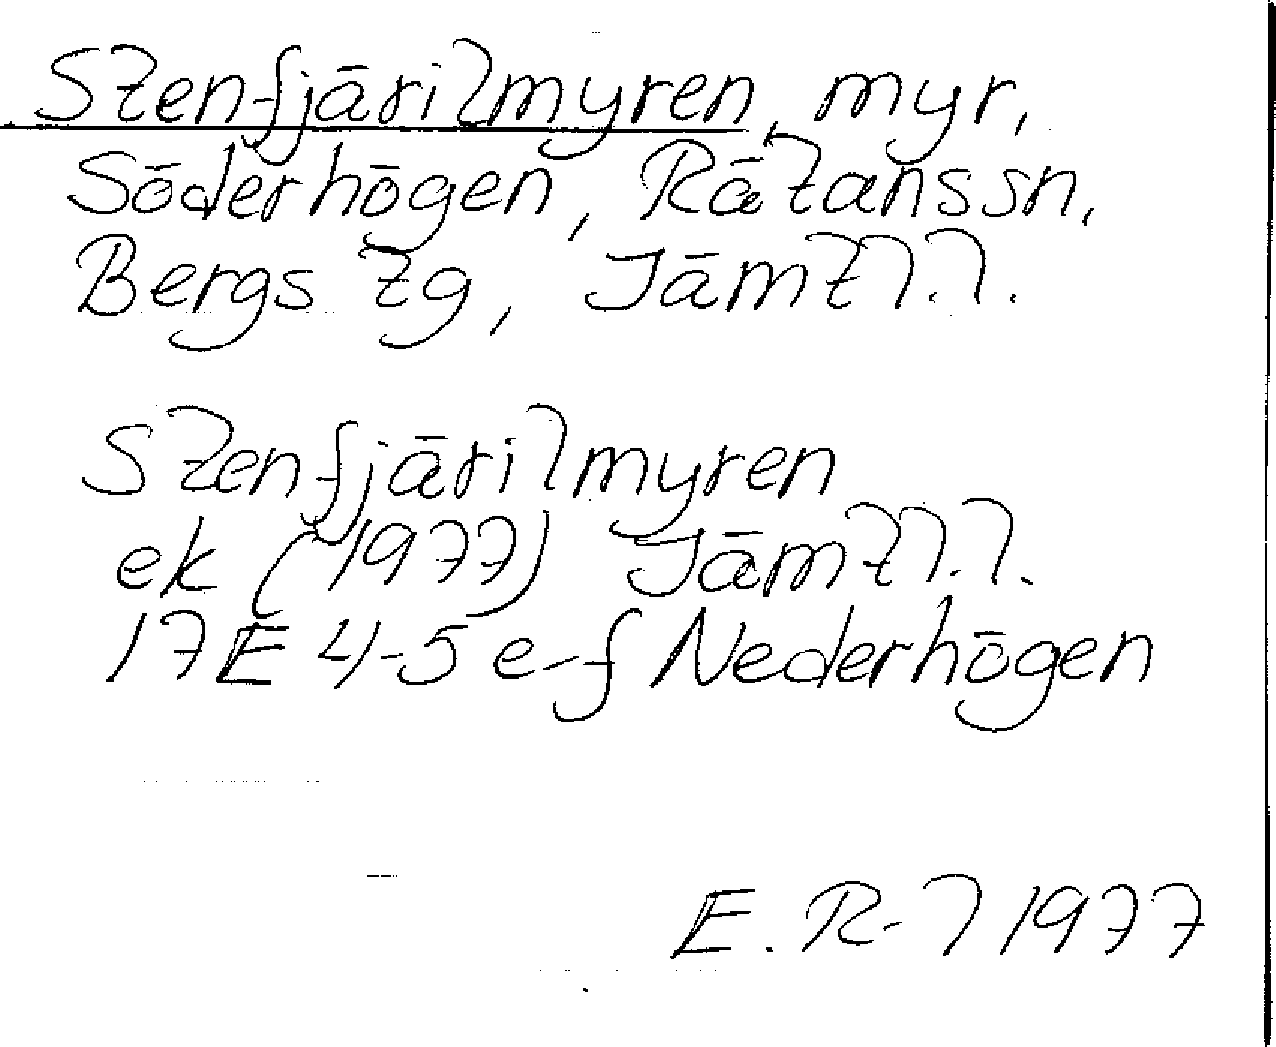 Stenfjärilmyren, myr,
Söderhögen, Rätans sn,
Bergs tg, Jämtl. l.
Stenfjärilmyren
ek (1977) Jämtl. l.
17E 4-5 e-f Nederhögen
E. R-l 1977